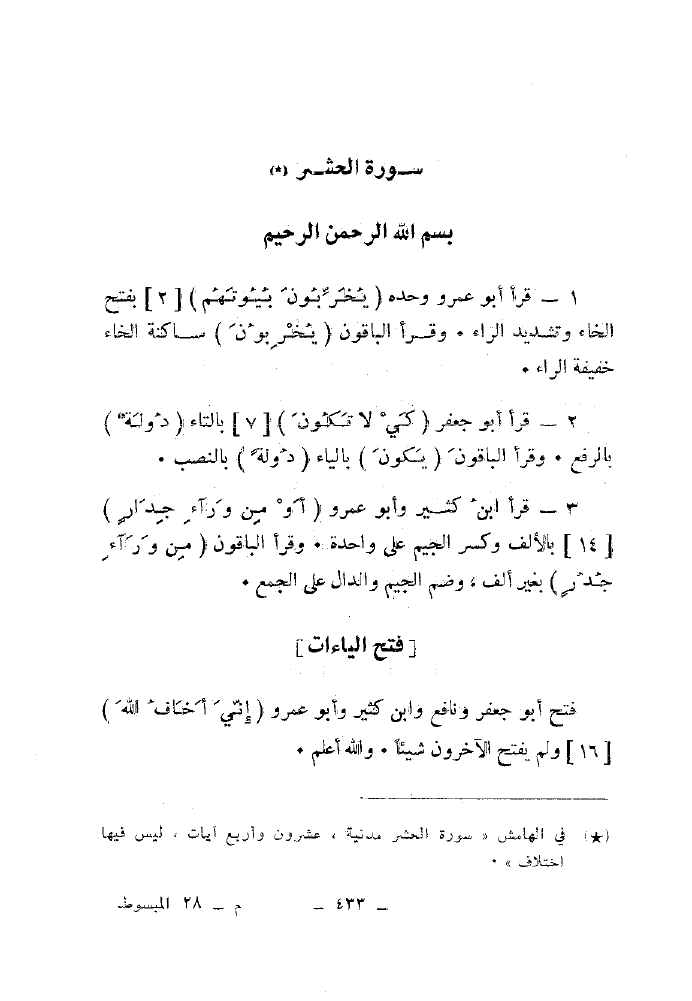 سورة الحشر (★)
بسم الله الرحمن الرحيم
١ – قرأ أبو عمرو وحده ( يُخَرِّبُونَ بُيُوتَهُم ) [ ٢ ] بفتح
الخاء وتشديد الراء ٠ وقرأ الباقون ( يُخْرِبُونَ ) ساكنة الخاء
خفيفة الراء ٠
٢ – قرأ أبو جعفر ( كَيْ لا تَكُونَ ) [ ٧ ] بالتاء ( دُولَةٌ )
بالرفع ٠ وقرأ الباقون ( يَكونَ ) بالياء ( دُولةً ) بالنصب ٠
٣ – قرأ ابنُ كثير وأبو عمرو ( أَوْ مِن وَرَآءِ جِدَارٍ )
[ ١٤ ] بالألف وكسر الجيم على واحدة ٠ وقرأ الباقون ( مِن وَرَآءِ
جُدُرٍ ) بغير ألف ، وضم الجيم والدال على الجمع ٠
[ فتح الياءات ]
فتح أبو جعفر ونافع وابن كثير وأبو عمرو ( إِنِّيَ أَخَافُ اللهَ )
[ ١٦ ] ولم يفتح الآخرون شيئاً ٠ والله أعلم ٠
(★) في الهامش « سورة الحشر مدنية ، عشرون وأربع آيات ، ليس فيها
اختلاف » ٠
– ٤٣٣ – م – ٢٨ المبسوط